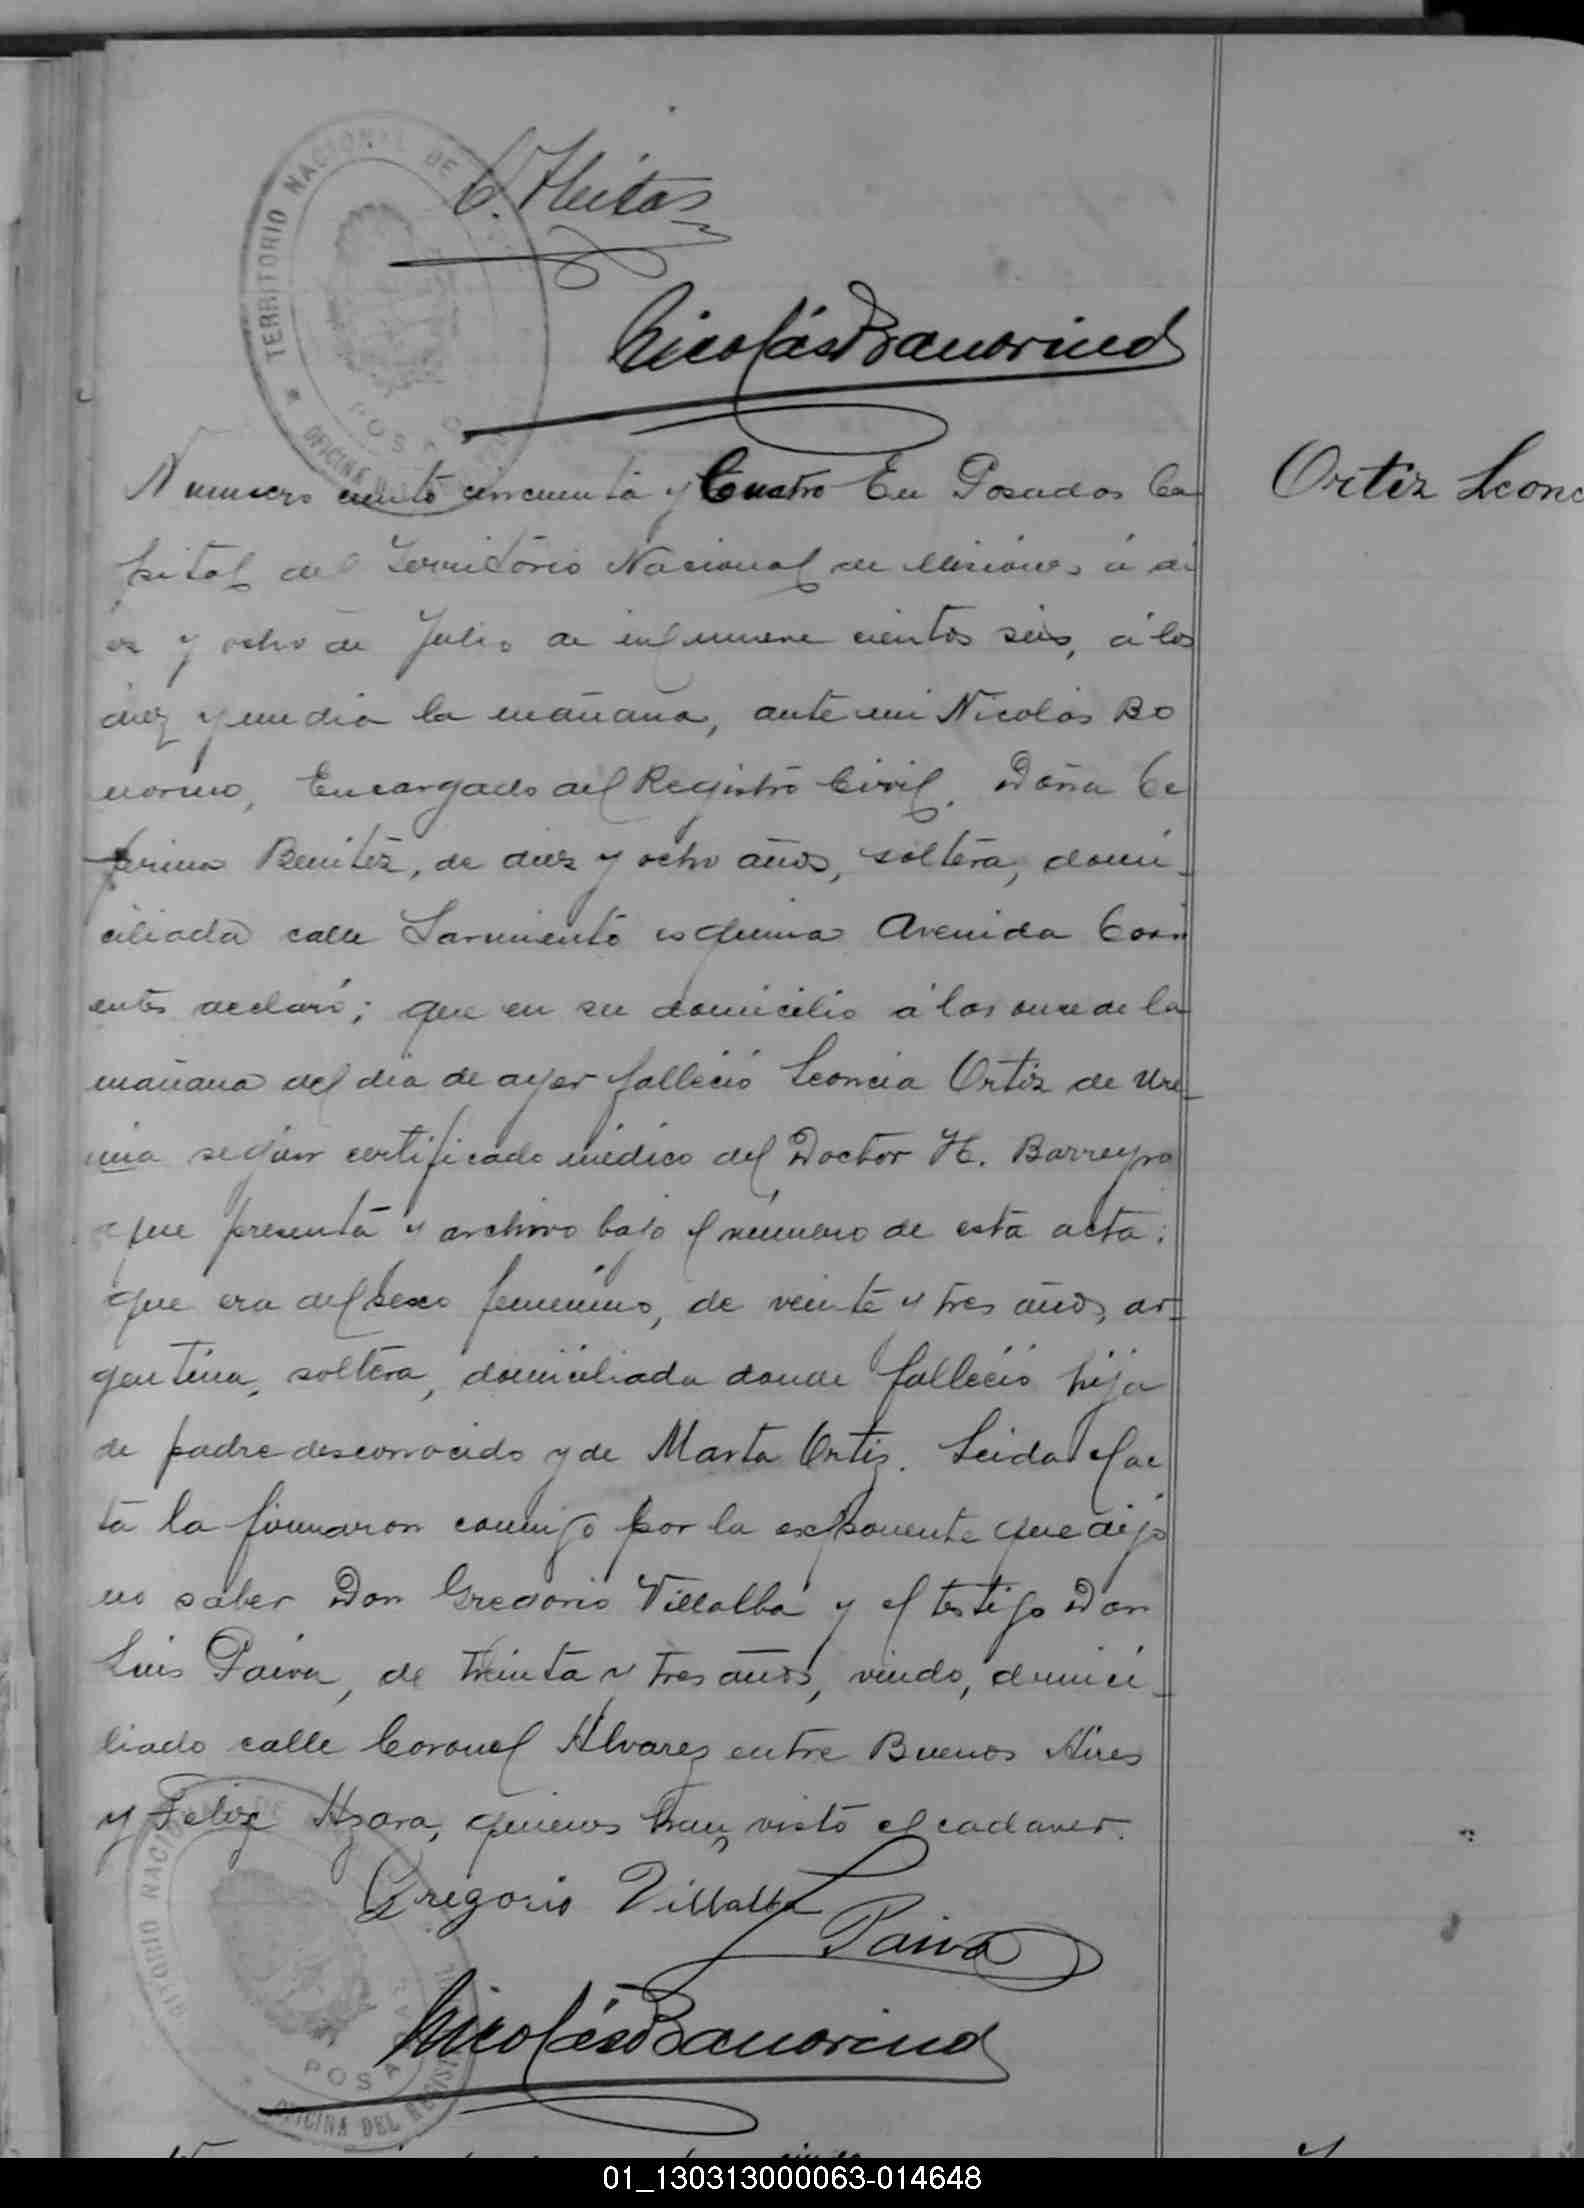 TERRITORIO NACIONAL DE
POSA
OFICINA
Nicolás Bonorino
Numero ciento cincuenta y Cuatro En Posadas Ca
pital del Territorio Nacional de Misiones, á di
ez y ocho de Julio de mil nueve cientos seis, á las
diez y media la mañana, ante mi Nicolás Bo
norino, Encargado del Registro Civil. Doña Ce
ferina Benitez, de diez y ocho años, soltera, domi-
ciliada calle Sarmiento esquina Avenida Corri
entes declaró; que en su domicilio á las once de la
mañana del dia de ayer falleció Leoncia Ortiz de
según certificado médico del Doctor H. Barreyro
que presenta y archivo bajo el número de esta acta;
que era del sexo femenino, de veinte y tres años, ar-
gentina, soltera, domiciliada donde falleció hija
de padre desconocido y de Marta Ortiz. Leida el ac
ta la firmaron conmigo por la exponente que dijo
no saber Don Gregorio Villalba y el testigo Don
Luis Paiva, de treinta y tres años, viudo, domici-
liado calle Coronel Alvarez entre Buenos Aires
y Felix Azara, quienes han visto el cadaver.
Ortiz Leonc
Gregorio Villalba
L Paiva
Nicolás Bonorino
POSA
OFICINA DEL REGIS
01_130313000063-014648